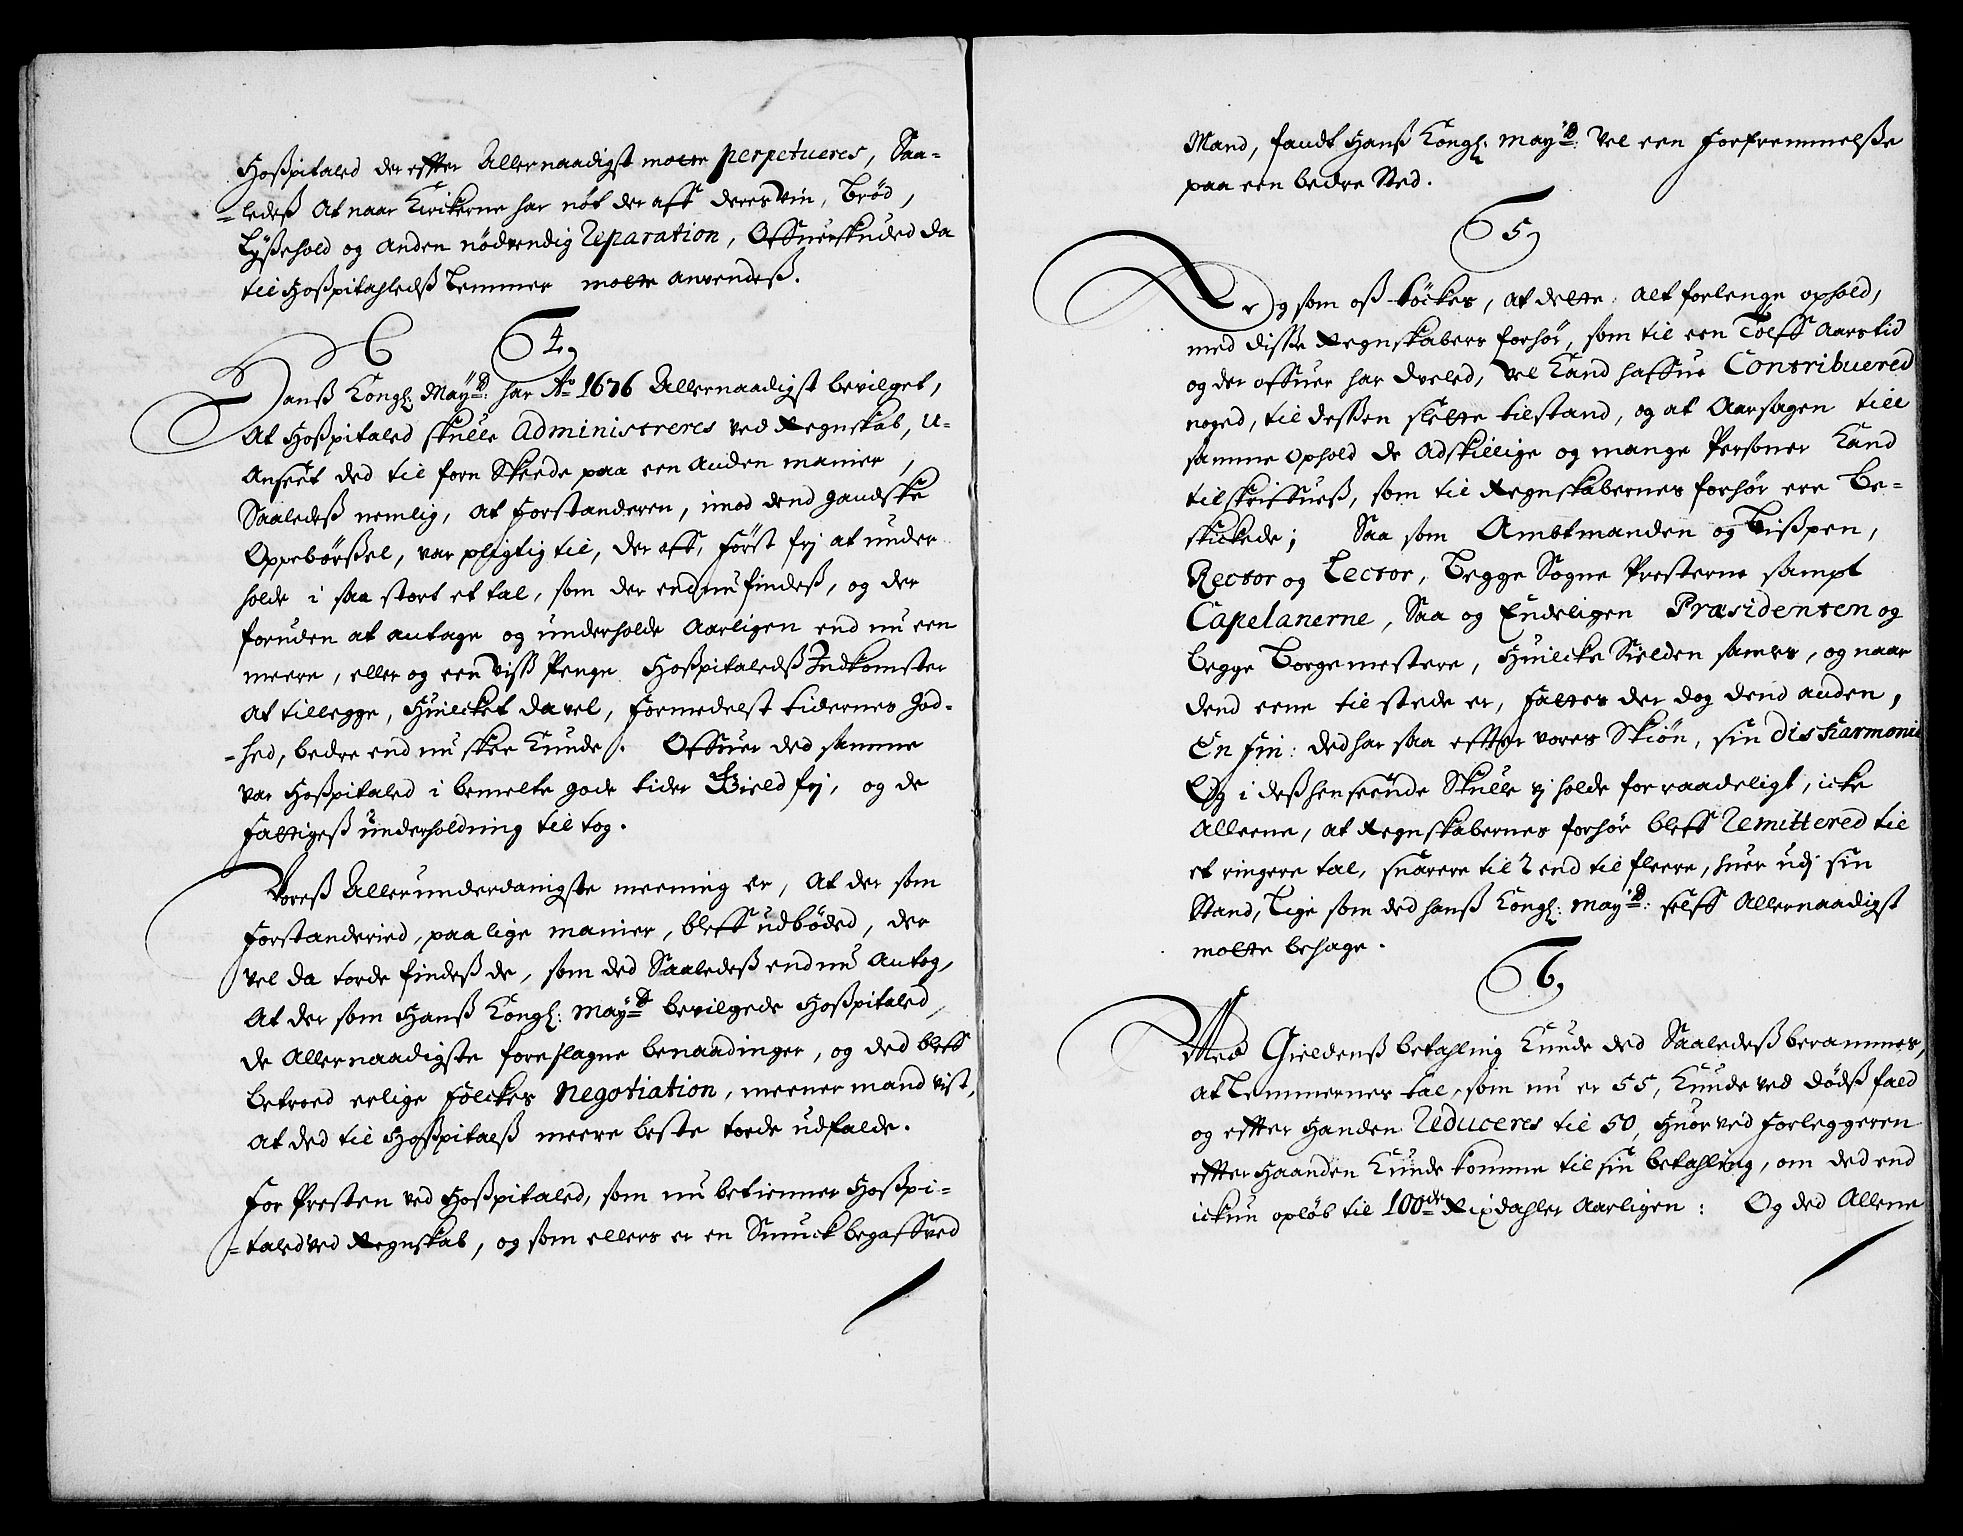 Hoßpitaled der effter Allernaadigst motte perpetueres, Saa-
-ledeß At naar Kirckerne har nôt der aff deres viin, Brød,
Lyßehold og anden nödvendig Reparation, Offuerskuded da
til Hoßpitahledß Lemmer motte anvendeß.
4,
Hanß Kongl: May:tt har Ao 1676 Allernaadigst bevilget,
At Hoßpitaled skulle Administreres ved Regnskab, U-
Anseet ded til forn Skeede paa een anden maneer,
Saaledeß nemlig, At Forstanderen, imod dend gandske
Oppebörßel, var pligtig til, der aff, först frj at under
holde i saa stort et tal, som der end nu findeß, og der
foruden at antage og underholde Aarligen end nu een
meere, eller og een viss Penge Hoßpitaledß Indkomster
At tillegge, Huilcket da vel, formedelst tidernes God-
-hed, bedre end nu skee Kunde. Offuer ded samme
var Hoßpitaled i bemelte gode tider Gield frj, og de
Fattigeß underholdning til tog.
Voreß Allerunderdanigste meening er, At der som
Forstanderied, paa lige manier, bleff udbôded, der
vel da torde findeß de, som ded Saaledeß end nu Antog,
At der som Hanß Kongl: May:tt bevilgede Hoßpitaled,
de Allernaadigste foreslagne benaadinger, og ded bleff
betroed erlige Folckes Negotiation, meener mand vist,
At ded til Hoßpitalß meere beste torde udfalde.
For Presten ved Hoßpitaled, som nu betienner Hoßpi-
-taled ved Regnskab, og som ellers er en Smuck begaffved
Mand, fandt Hanß Kongl: May:tt vel een Forfremmelße
paa een bedre Sted.
5,
Og som oß töckes, at dette alt forlenge ophold,
med disse Regnskabers forhör, som til een Tolff Aars tid
og der offuer har dveled, vel Kand haffue Contribuered
noged, til dessen slette tilstand, og at Aarsagen till
samme Ophold de Adskillige og mange Personer Kand
tilskriffueß, som til Regnskabernes forhör ere Be-
skickede; Saa som Ambtmanden og Bißpen,
Rector og Lector, Begge Sogne Presterne sampt
Capelanerne, Saa og Endeligen Præsidenten og
begge Borgemestere, Huilcke Sielden samles, og naar
dend eene til stede er, Fattes der dog dend anden,
En fin: ded har saa effter vores Skiön, sin disharmonie
Og i deß henseende Skulle vj holde for raadeligt, icke
Alleene, at Regnskabernes forhör bleff Remittered til
et ringere tal, snarere til 2 end til fleere, huer udj sin
Stand, Lige som ded hanß Kongl: May:tt selff Allernaadigst
motte behage.
6,
Med Gieldenß betahling Kunde ded Saaledeß berammes,
At Lemmernes tal, som nu er 55, Kunde ved dödß fald
og effter Handen Reduceres til 50, Huor ved Forleggeren
effter Haanden Kunde komme til sin betahling, om ded end
ickun oplöb til 100de Rixdahler Aarligen: Og ded Allene